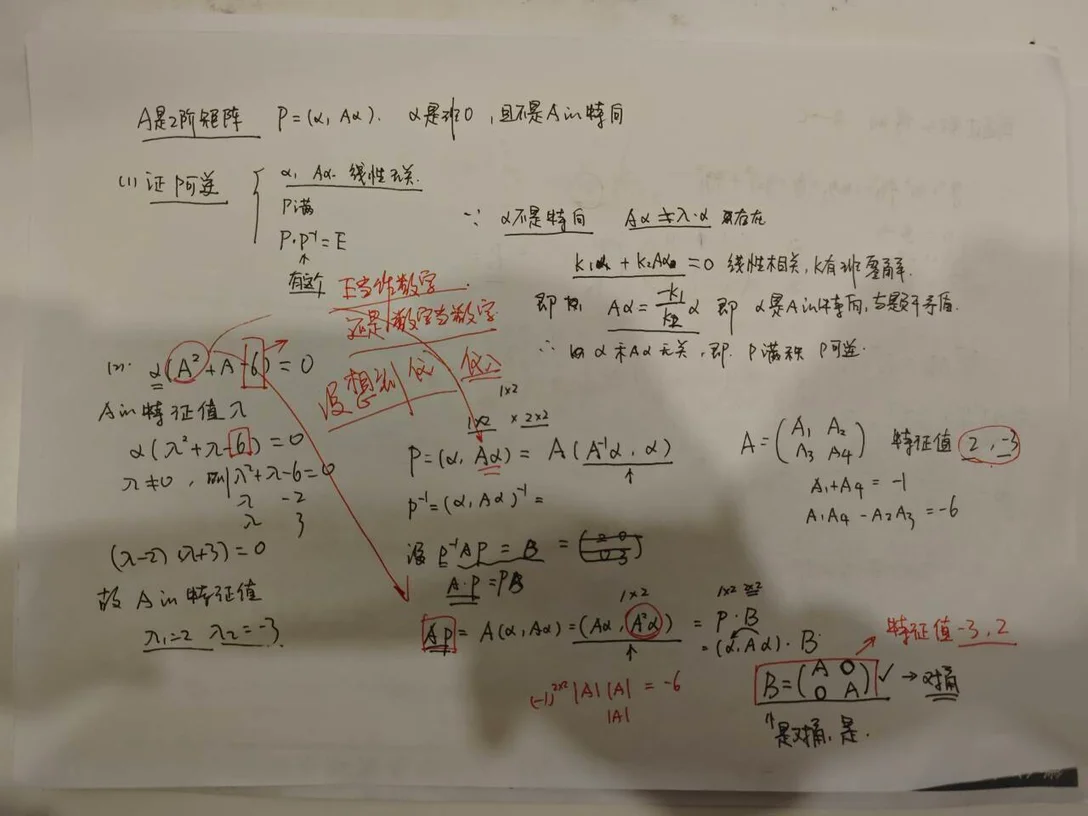 A是2阶矩阵 P=(α, Aα). α是非0, 且不是A的特向
(1) 证P可逆
α, Aα 线性无关.
P满
P·P⁻¹=E
↑
有这个
∵ α不是特向 Aα≠λ·α 存在
k₁α + k₂Aα=0 线性相关, k有非零解.
即 Aα=-k₁/k₂ α 即 α是A的特向, 与题干矛盾.
∴ α和Aα无关, 即 P满秩 P可逆.
E当作数字
还是数字当数字
没想到 代入
(2). α(A²+A-6)=0
A的特征值λ
α(λ²+λ-6)=0
λ≠0, 则λ²+λ-6=0
λ -2
λ 3
(λ-2)(λ+3)=0
故A的特征值
λ₁=2 λ₂=-3.
1×2
1×2 × 2×2
P=(α, Aα)= A(A⁻¹α, α)
↑
P⁻¹=(α, Aα)⁻¹=
设 P⁻¹AP = B =
A·P=PB
1×2 1×2 2×2
AP= A(α, Aα)=(Aα, A²α) = P·B
↑
=(α, Aα)·B
(-1)²ˣ² |A| |A| = -6
|A|
A=(A₁ A₂
A₃ A₄) 特征值 2, -3
A₁+A₄ = -1
A₁A₄-A₂A₃=-6
特征值-3, 2
B=(A 0
0 A) ✓ → 对角
↑是对角, 是.